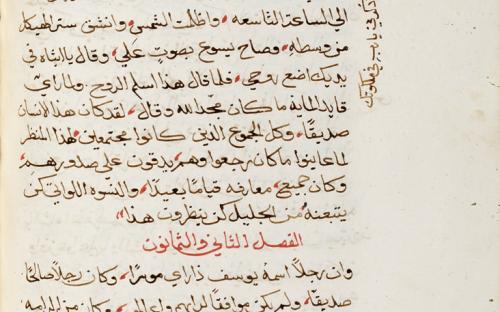 الي الساعة التاسعه واظلمت الشمس وانشق ستر الهيكل
من وسطه وصاح يسوع بصوت عالي وقال يا ابتاه في
يديك اضع روحي فلما قال هذا اسلم الروح ولما راي
قايد الماية ما كان مجد الله وقال لقد كان هذا الانسان
صديقا وكل الجموع الذين كانوا مجتمعين لهذا المنظر
لما عاينوا ما كان رجعوا وهم يدقون على صدورهم
وكان جميع معارفه قياما بعيدا والنسوه اللواتي كن
يتبعنه من الجليل كن ينظرون هذا
الفصل الثاني والثمانون
وان رجلا اسمه يوسف ذا راي موسرا وكان رجلا صالحا
صديقا ولم يكن موافقا لرايهم واعمالهم وكان من الرامه